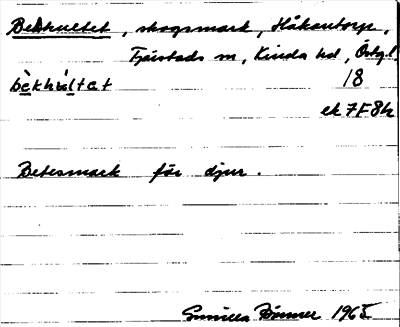 Bekhultet, skogsmark, Håkantorp,
Tjärstads sn, Kinda hd, Östg.l.
bèkhùltət 18
ek 7F8h
Betesmark för djur.
Gunilla 1965